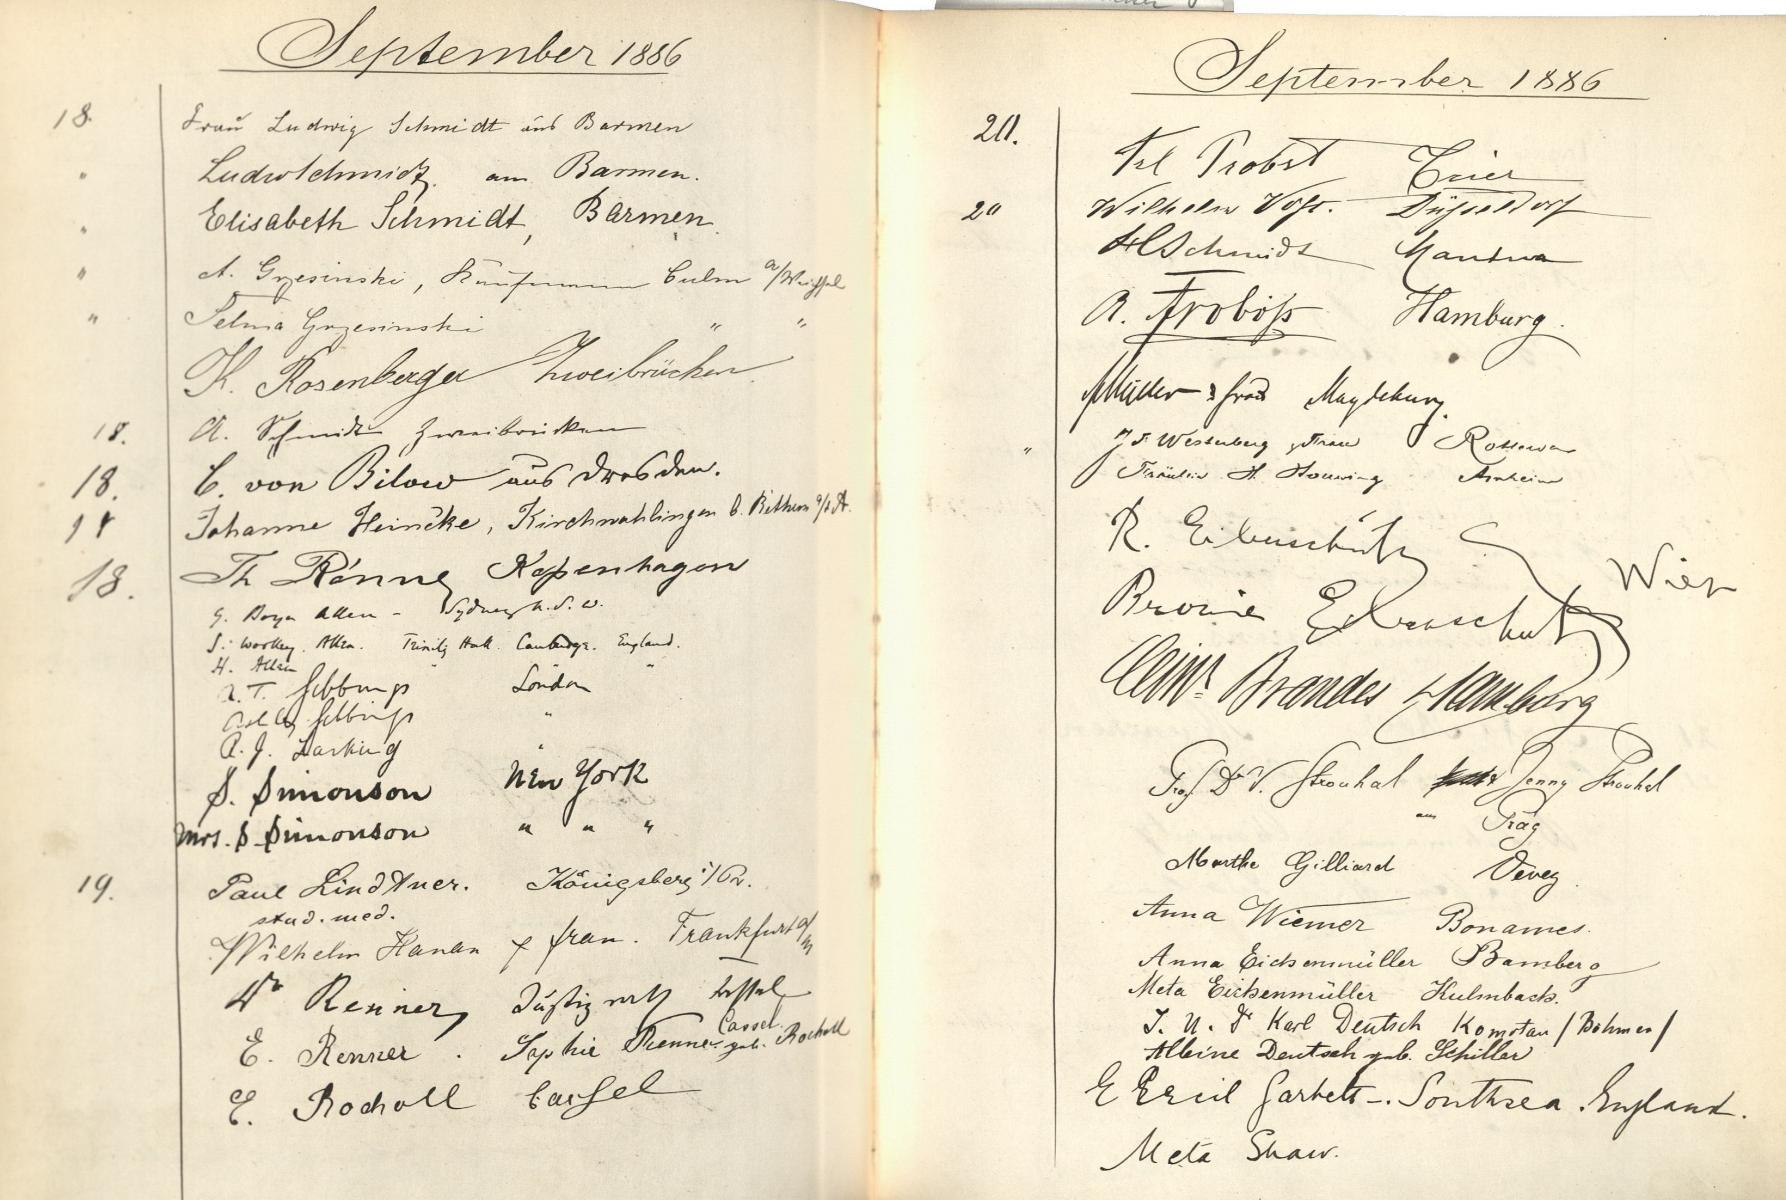 September 1886
18. Frau Ludwig Schmidt aus Barmen
" Ludw Schmidt. aus Barmen.
" Elisabeth Schmidt, Barmen.
" A. Grzesinski, Kaufmann Culm a/Weichsel
" Selma Grzesinski " "
K. Rosenberger Zweibrücken
18. A. Schmidt Zweibrücken
18. C. von Bilow aus Dresden.
18 Johanne Heincke, Kirchwahlingen b. Rethem a/d A.
18. Th Rönne Kopenhagen
G. Boyce Allen - Sydney N. S. W.
S. Woolley Allen. Trinity Hall. Cambridge. England.
H. Allen " "
A. T. London
"
A. J. Larking "
S. Simonson New York
Mrs. S. Simonson " " "
19. Paul Lindtner. Königsberg i/Pr.
stud. med.
Wilhelm Hanau & frau. Frankfurt a/M
Dr Renner, Justizrath Cassel
E. Renner. Sophie Renner geb. Rocholl Cassel.
E. Rocholl Cassel
September 1886
20. Frl Probst Trier
20 Wilhelm Vogt. Düsseldorf
H Schmidt
A. Froböß Hamburg.
Müller & frau Magdeburg.
" J F Westerberg & Frau
Fräulein H. Houwing Arnheim
R. Eibenschütz
Wien
Eibenschütz
Brandes Hamburg
Prof Dr V. Strouhal Jenny Strouhal
aus Prag
Marthe Gilliard Vevey.
Anna Wiemer Bonames.
Anna Eichenmüller Bamberg
Meta Eichenmüller Kulmbach.
J. U. Dr Karl Deutsch Komotau /Böhmen/
Albine Deutsch geb. Schiller
E Ecril Garbett -. Southsea. England.
Meta Shaw.